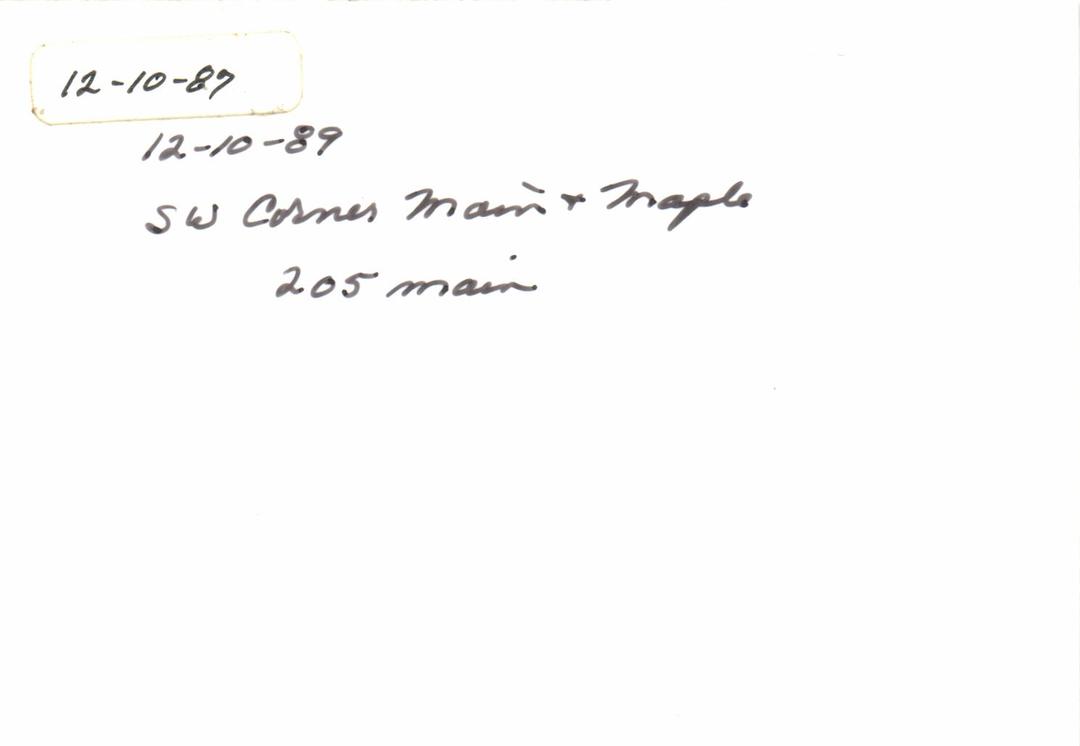 12-10-87
12-10-89
SW Corner Main + Maple
205 main